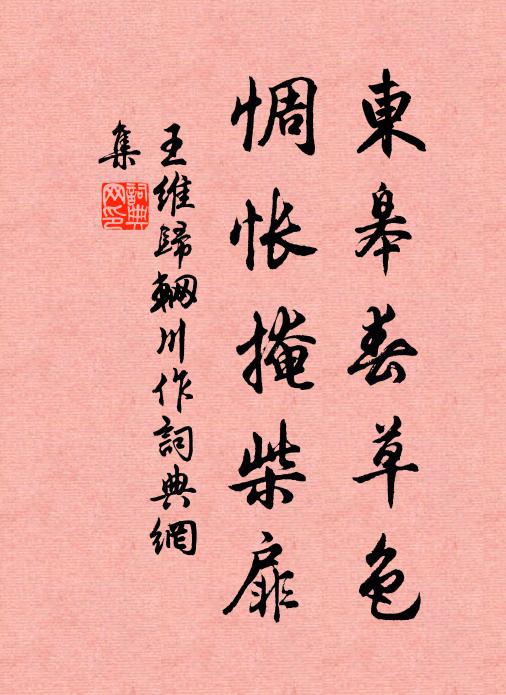 東皋春草色
惆悵掩柴扉
王維歸輞川作詞典網
集
詞典
网印